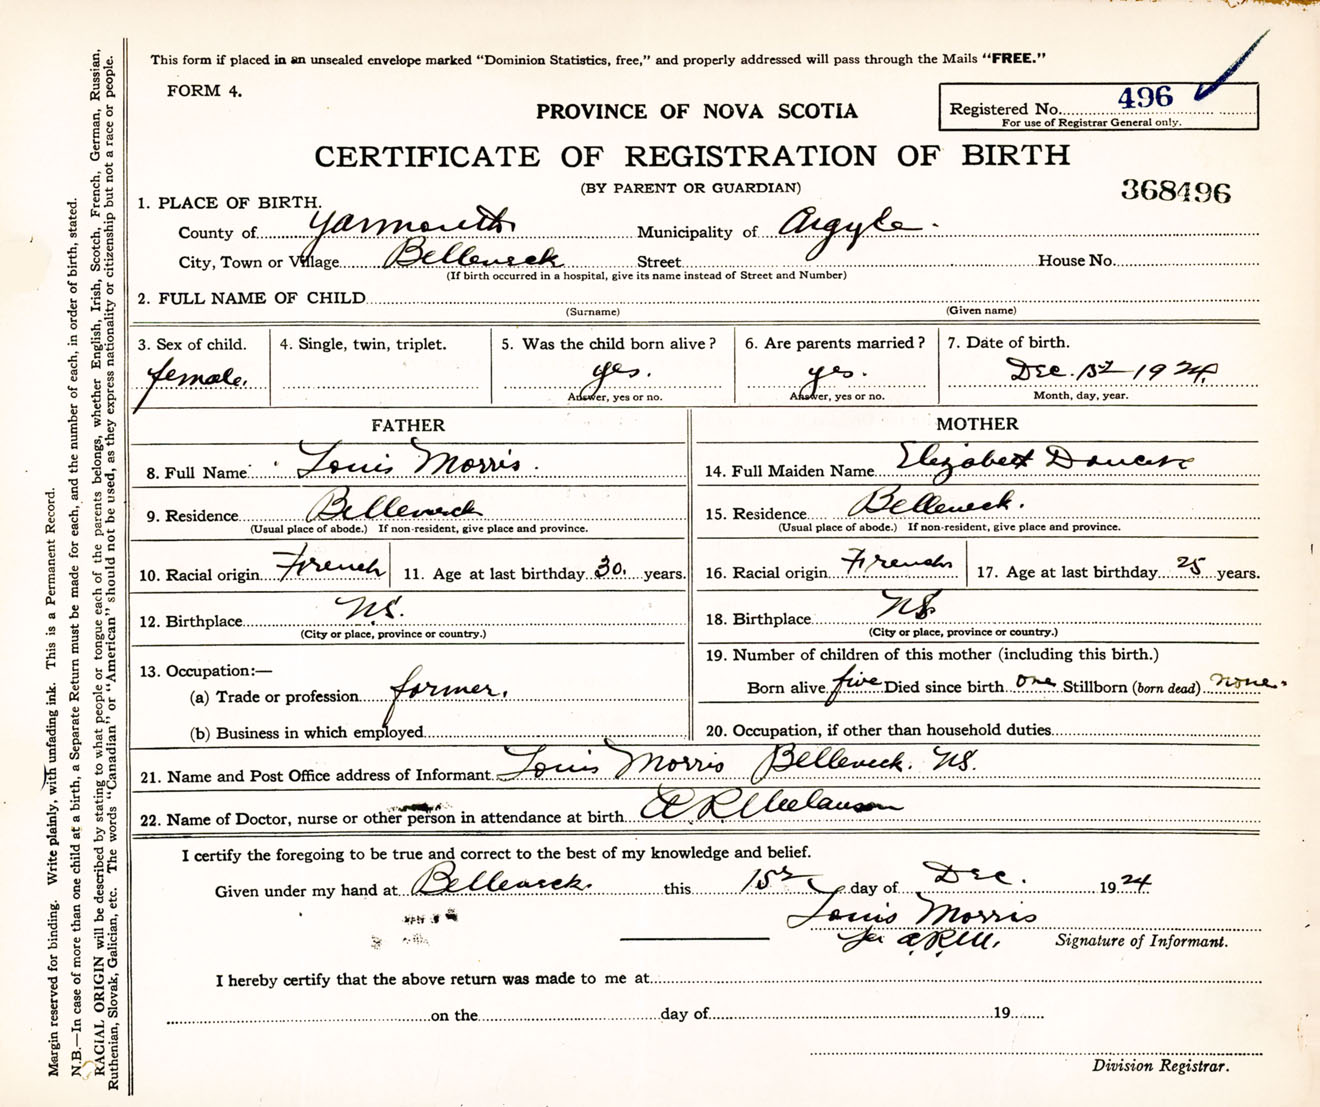 This form if placed in an unsealed envelope marked “Dominion Statistics, free,” and properly addressed will pass through the Mails “FREE.”
FORM 4.
Registered No. 496
For use of Registrar General only.
PROVINCE OF NOVA SCOTIA
CERTIFICATE OF REGISTRATION OF BIRTH
(BY PARENT OR GUARDIAN)
368496
1. PLACE OF BIRTH.
County of Yarmouth Municipality of Argyle.
City, Town or Village Belleneck Street House No.
(If birth occurred in a hospital, give its name instead of Street and Number)
2. FULL NAME OF CHILD
(Surname) (Given name)
3. Sex of child. 4. Single, twin, triplet. 5. Was the child born alive? 6. Are parents married? 7. Date of birth.
female. yes. yes. Dec. 1924.
Answer, yes or no. Answer, yes or no. Month, day, year.
FATHER
8. Full Name Louis Morris.
9. Residence Belleneck
(Usual place of abode.) If non-resident, give place and province.
10. Racial origin French 11. Age at last birthday 30. years.
12. Birthplace N.S.
(City or place, province or country.)
13. Occupation:—
(a) Trade or profession farmer.
(b) Business in which employed
MOTHER
14. Full Maiden Name Elizabeth
15. Residence Belleneck.
(Usual place of abode.) If non-resident, give place and province.
16. Racial origin French 17. Age at last birthday 25 years.
18. Birthplace NS
(City or place, province or country.)
19. Number of children of this mother (including this birth.)
Born alive five Died since birth one Stillborn (born dead) none.
20. Occupation, if other than household duties
21. Name and Post Office address of Informant Louis Morris Belleneck. NS.
22. Name of Doctor, nurse or other person in attendance at birth A R Melanson
I certify the foregoing to be true and correct to the best of my knowledge and belief.
Given under my hand at Belleneck. this day of Dec. 1924
Louis Morris
per A.R.M. Signature of Informant.
I hereby certify that the above return was made to me at
on the day of 19
Division Registrar.
Margin reserved for binding. Write plainly, with unfading ink. This is a Permanent Record.
N.B.—In case of more than one child at a birth, a Separate Return must be made for each, and the number of each, in order of birth, stated.
RACIAL ORIGIN will be described by stating to what people or tongue each of the parents belongs, whether English, Irish, Scotch, French, German, Russian,
Ruthenian, Slovak, Galician, etc. The words “Canadian” or “American” should not be used, as they express nationality or citizenship but not a race or people.